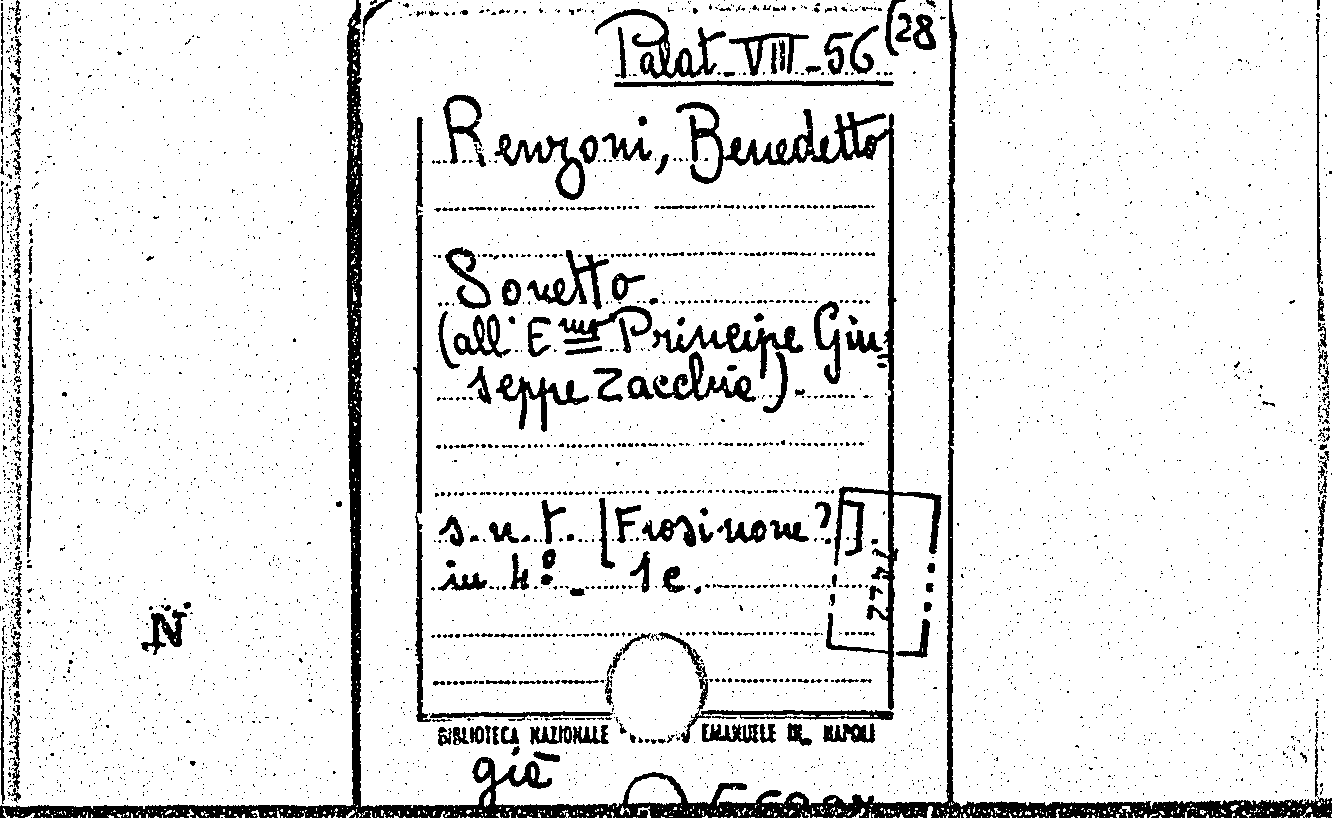 Palat-VIII-56 (28
Renzoni, Benedetto
Sonetto.
(all'Emo Principe Giu=
seppe Zacchia).
s.n.t. [Frosinone?].
in 4º - 1 c.
N
BIBLIOTECA NAZIONALE EMANUELE III NAPOLI
già